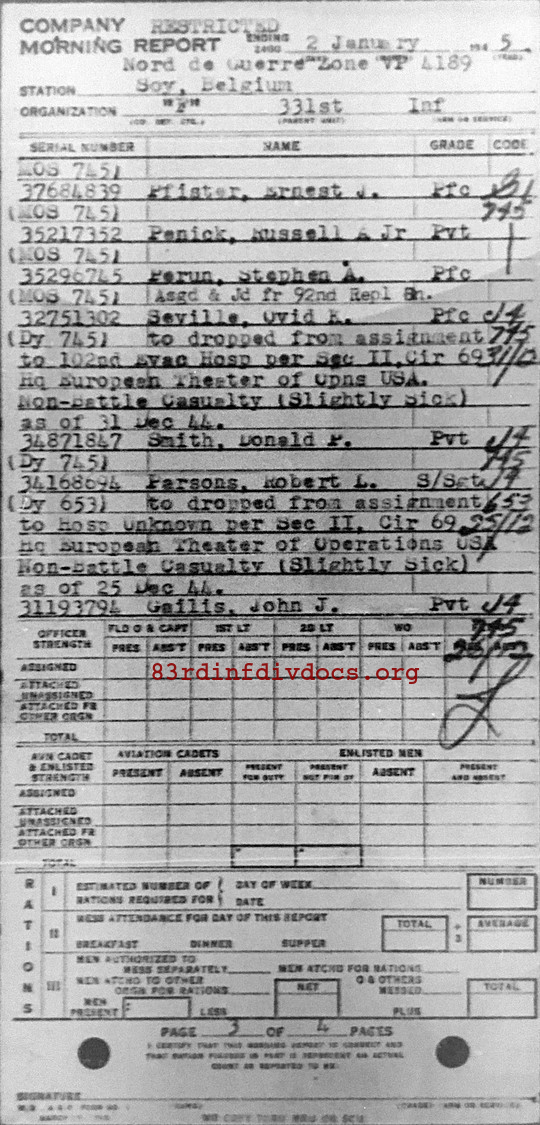 COMPANY RESTRICTED
MORNING REPORT ENDING 2400 2 January 194 5
Nord de Guerre Zone "VP" 4189
STATION Soy, Belgium
ORGANIZATION "F" 331st Inf
(PARENT UNIT) (ARM OR SERVICE)
SERIAL NUMBER NAME GRADE CODE
MOS 745)
37684839 Pfister, Ernest J. Pfc
(MOS 745) 745
35217352 Penick, Russell A Jr Pvt
(MOS 745)
35296745 Perun, Stephen A. Pfc
(MOS 745) Asgd & Jd fr 92nd Repl Bn.
32751302 Seville, Ovid K. Pfc J4
(Dy 745) to dropped from assignment 745
to 102nd Evac Hosp per Sec II, Cir 69 31/12
Hq European Theater of Opns USA.
Non-Battle Casualty (Slightly Sick)
as of 31 Dec 44.
34871847 Smith, Donald P. Pvt J4
(Dy 745) 745
34168694 Parsons, Robert L. S/Sgt J4
(Dy 653) to dropped from assignment 653
to Hosp Unknown per Sec II, Cir 69 25/12
Hq European Theater of Operations USA
Non-Battle Casualty (Slightly Sick)
as of 25 Dec 44.
31193794 Gailis, John J. Pvt J4
OFFICER STRENGTH FLD O & CAPT 1ST LT 2D LT WO 745
PRES ABS'T PRES ABS'T PRES ABS'T PRES ABS'T
ASSIGNED
83rdinfdivdocs.org
ATTACHED UNASSIGNED
ATTACHED FR OTHER ORGN
TOTAL
AVN CADET & ENLISTED STRENGTH AVIATION CADETS ENLISTED MEN
PRESENT ABSENT PRESENT FOR DUTY PRESENT NOT FOR DY ABSENT PRESENT AND ABSENT
ASSIGNED
ATTACHED UNASSIGNED
ATTACHED FR OTHER ORGN
TOTAL
RATIONS
I ESTIMATED NUMBER OF RATIONS REQUIRED FOR DAY OF WEEK DATE NUMBER
II MESS ATTENDANCE FOR DAY OF THIS REPORT TOTAL ÷ 3 AVERAGE
BREAKFAST DINNER SUPPER
III MEN AUTHORIZED TO MESS SEPARATELY MEN ATCHD FOR RATIONS
MEN ATCHD TO OTHER ORGN FOR RATIONS NET O & OTHERS MESSED TOTAL
MEN PRESENT LESS PLUS
PAGE 3 OF 4 PAGES
I CERTIFY THAT THIS MORNING REPORT IS CORRECT AND
SIGNATURE